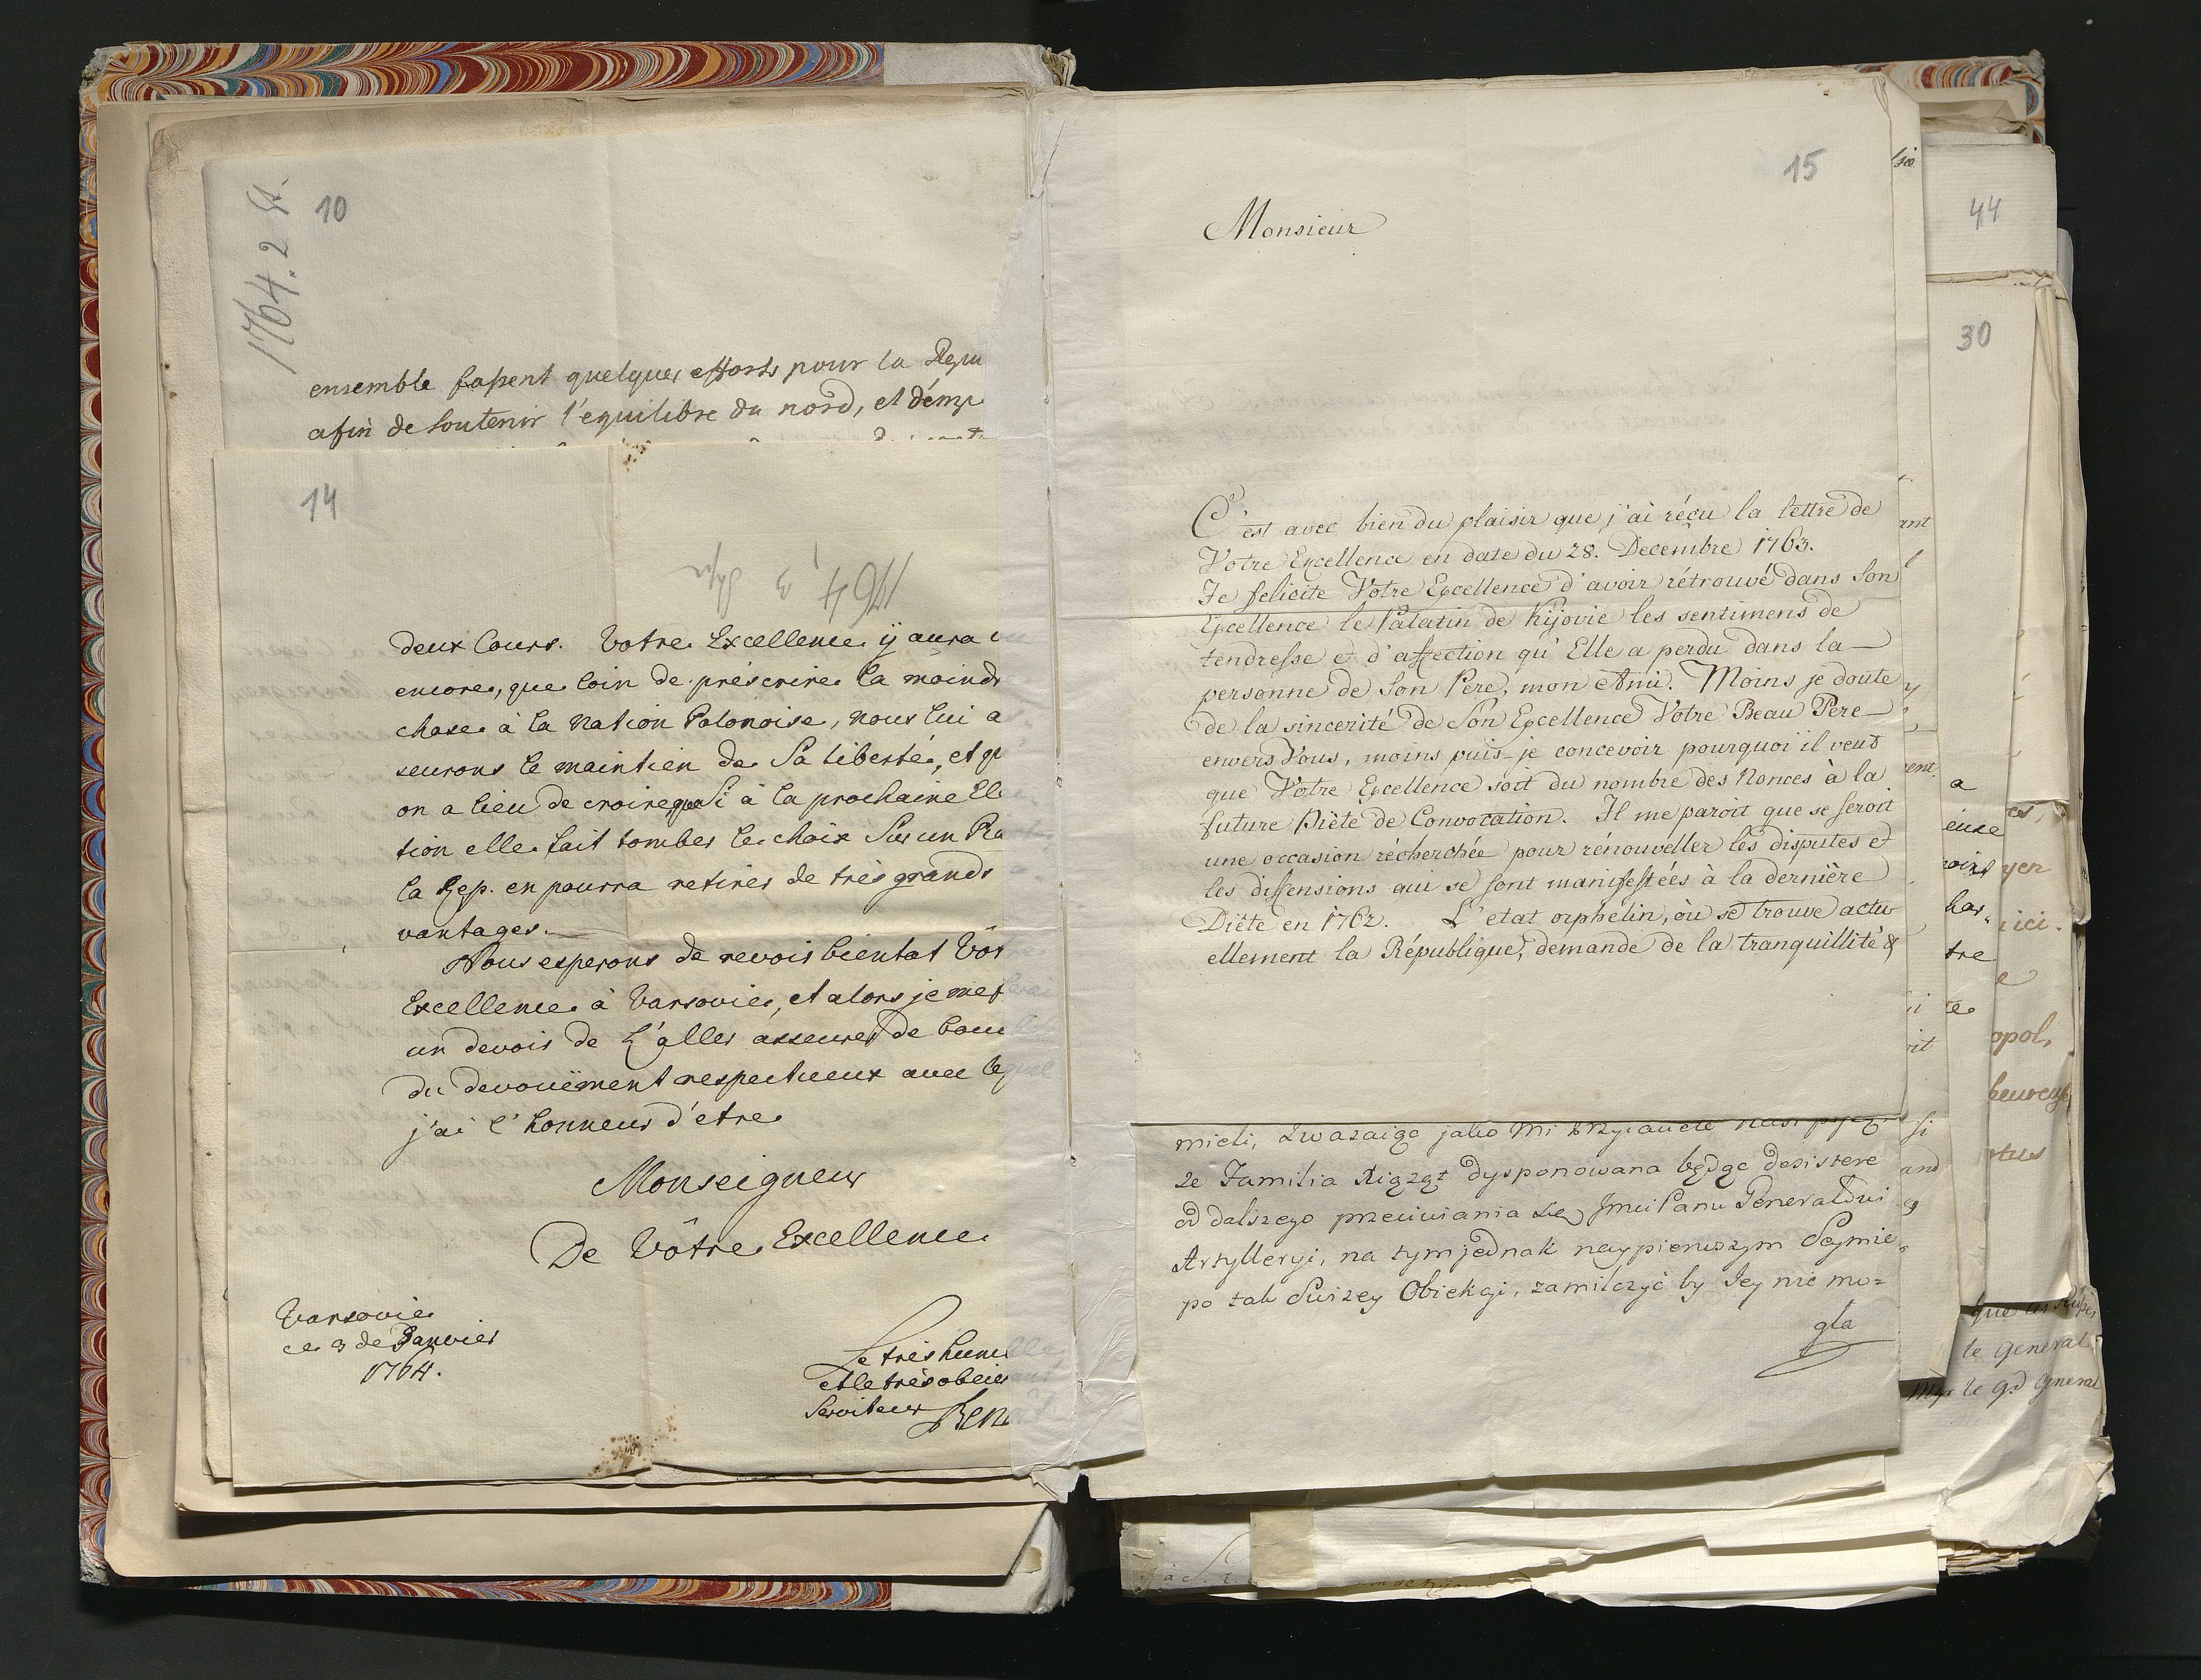 10
1764. 2 St.
ensemble fassent quelques efforts pour la Repu
afin de soutenir l'equilibre du nord, et d'emp
14
1764, 3 Stya
deux Cours. Votre Excellence ÿ aura
encore, que loin de préscrire la moind
chose à la Nation Polonoise, nous lui a
seurons le maintien de Sa liberté, et qu
on a lieu de croire que Si à la prochaine Ele
tion elle fait tomber le choix Sur un Pia
la Rep. en pourra retirer de très grands
vantages.
Nous esperons de revoir bientot Vôt
Excellence à Varsovie, et alors je me f
un devoir de L'aller asseurer de bou
du devouëment respectueux avec leq
j'ai l'honneur d'etre
Monseigneur
De Vôtre Excellence
Varsovie
ce 3 de Janvier
1764.
Le très humble
et le très obeiss
Serviteur Ben
15
Monsieur
C'est avec bien du plaisir que j'ai réçu la lettre de
Votre Excellence en date du 28. Decembre 1763.
Je felicite Votre Excellence d'avoir rétrouvé dans Son
Excellence le Palatin de Kijovie les sentimens de
tendresse et d'affection qu'Elle a perdu dans la
personne de Son Pere, mon Ami. Moins je doute
de la sincerité de Son Excellence Votre Beau Pere
envers Vous, moins puis-je concevoir pourquoi il veut
que Votre Excellence soit du nombre des Nonces à la
future Diète de Convocation. Il me paroit que se seroit
une occasion récherchée pour rénouveller les disputes et
les dissensions qui se sont manifestées à la dérnière
Diète en 1762. L'etat orphelin, où se trouve actu
ellement la République, demande de la tranquillité &
mieli, zwazaige jako Mi
ze Familia Xiążąt dysponowana będąc desistere
od dalszego przeciwiania się Jmci Panu Generałowi
Artylleryi, na tym jednak naypierwszym Seymie,
po tak Swizey Obiekcji, zamilczyć by Jey nie mo=
gła
44
30
ant
ent.
a
euse
har
tre
yen
ici.
e
opol,
heureuse
si
and
le General
Mgr le Gd General